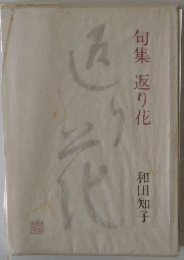 句集 返り花
和田知子
返り花